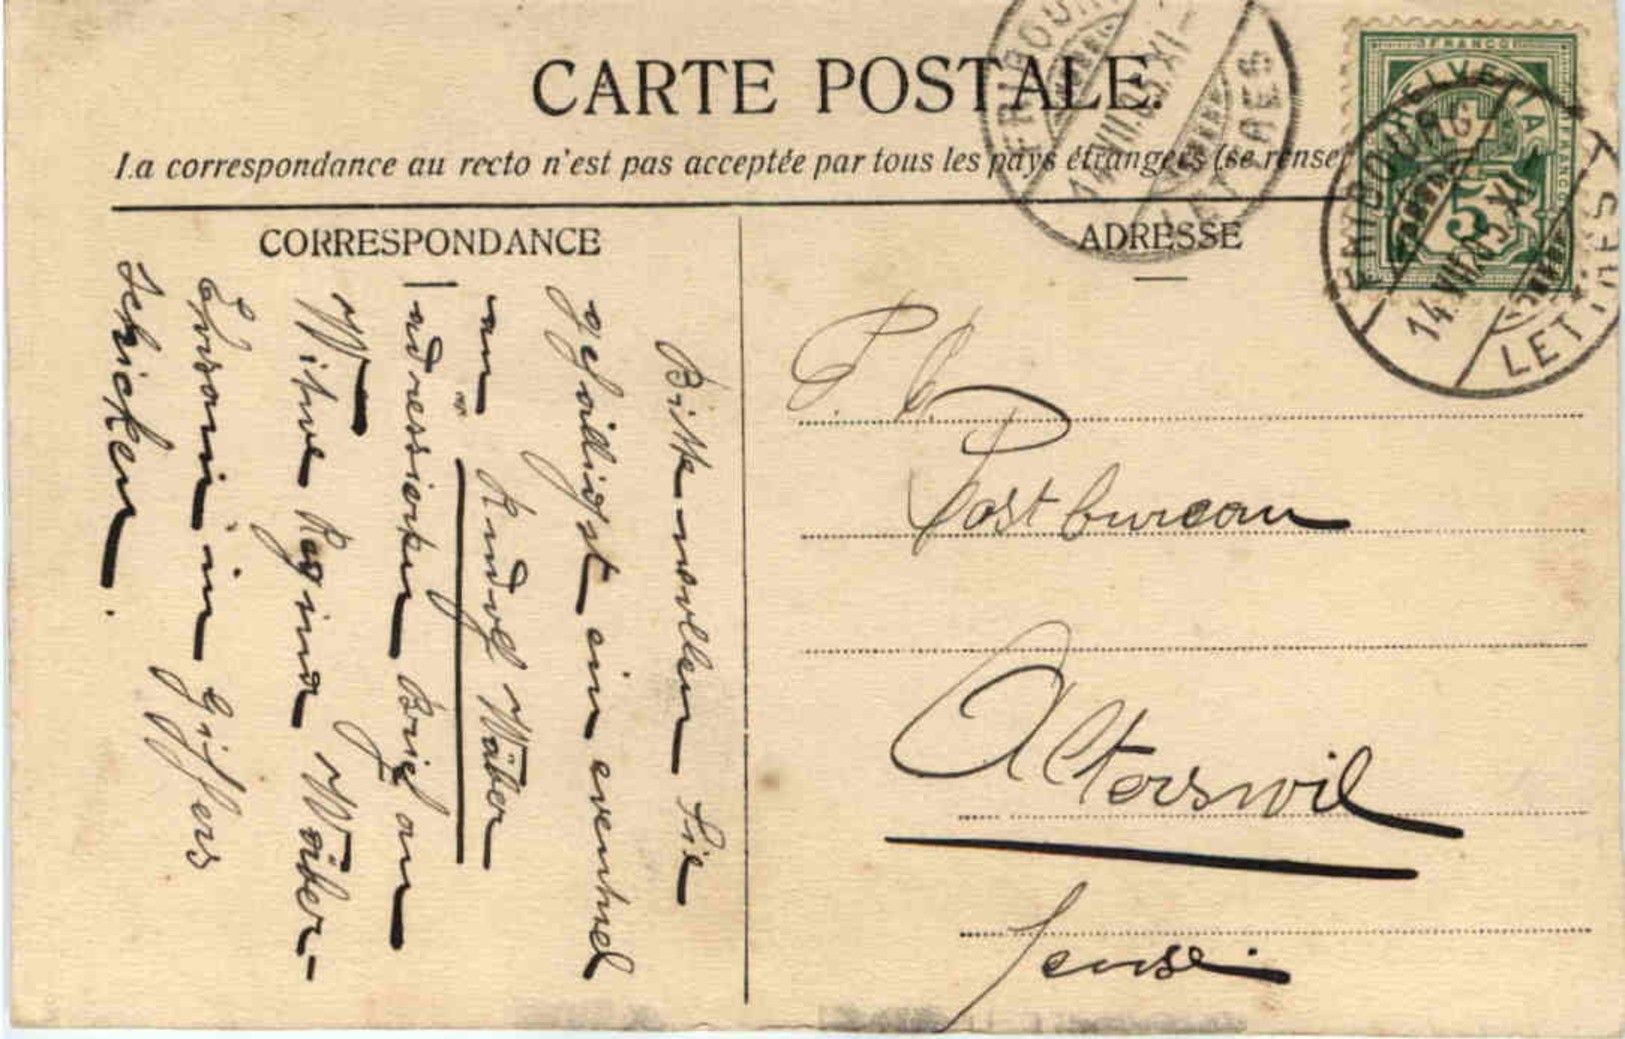 CARTE POSTALE.
La correspondance au recto n'est pas acceptée par tous les pays étrangers (se rense
CORRESPONDANCE
Bitte wollen Sie
gefälligst ein eventuel
an Rudolf Wäber
adressierten Brief an
Witwe Regina Wäber-
in Giffers
schicken.
ADRESSE
P. P.
Postbureau
Alterswil
Sense
FRANCO
HELVETIA
FRANCO
5
FRIBOURG
14.VIII.05.XI
LETT
FRIBOURG
14.VIII.05.XI-